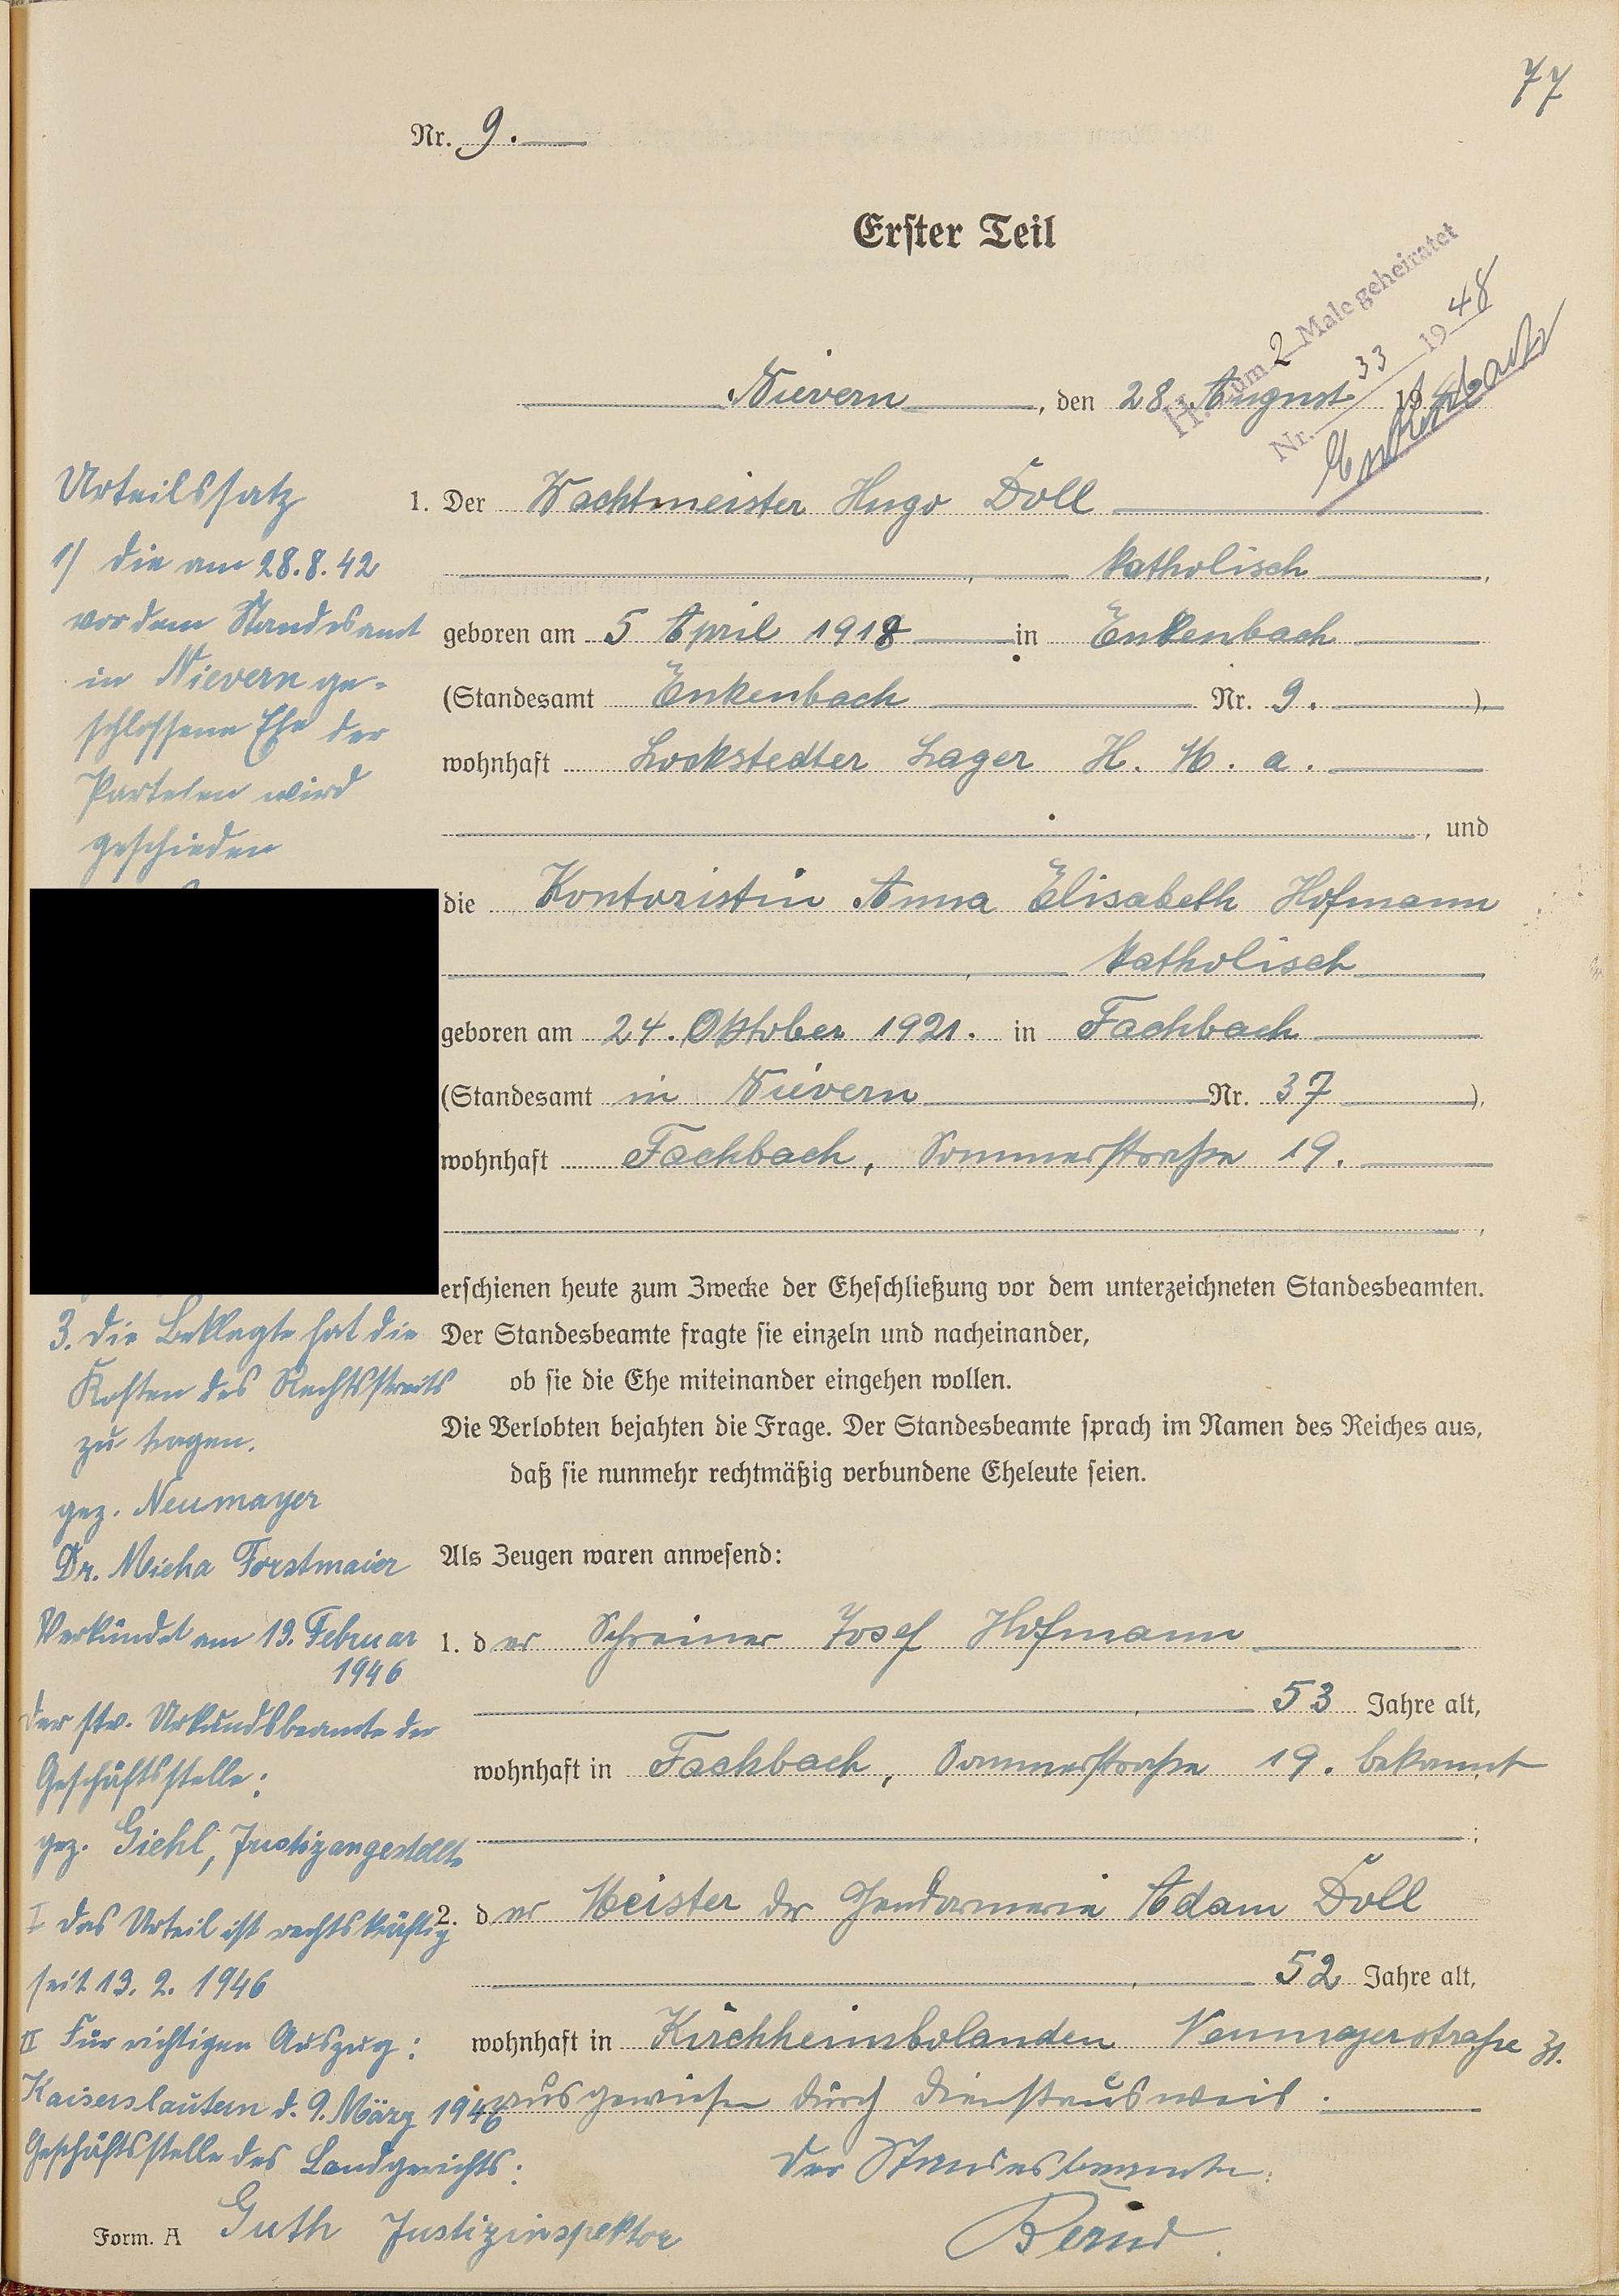 77
Nr. 9.
Erster Teil
H. zum 2 Male geheiratet
Nr. 33 1948
Enkenbach
Nievern, den 28. August 1942
1. Der Wachtmeister Hugo Doll
katholisch,
geboren am 5 April 1918 in Enkenbach
(Standesamt Enkenbach Nr. 9.),
wohnhaft Lockstedter Lager H. K. a.
, und
die Kontoristin Anna Elisabeth Hofmann
katholisch
geboren am 24. Oktober 1921. in Fachbach
(Standesamt in Nievern Nr. 37),
wohnhaft Fachbach, Sommerstraße 19.
erschienen heute zum Zwecke der Eheschließung vor dem unterzeichneten Standesbeamten.
Der Standesbeamte fragte sie einzeln und nacheinander,
ob sie die Ehe miteinander eingehen wollen.
Die Verlobten bejahten die Frage. Der Standesbeamte sprach im Namen des Reiches aus,
daß sie nunmehr rechtmäßig verbundene Eheleute seien.
Als Zeugen waren anwesend:
1. der Schreiner Josef Hofmann
53 Jahre alt,
wohnhaft in Fachbach, Sommerstraße 19. bekannt
;
2. der Meister der Gendarmerie Adam Doll
52 Jahre alt,
wohnhaft in Kirchheimbolanden Neumayerstraße 31.
ausgewiesen durch Dienstausweis.
Der Standesbeamte:
Bernd.
Urteilssatz
1) Die am 28.8.42
vor dem Standesamt
in Nievern ge-
schlossene Ehe der
Parteien wird
geschieden
3. Die Beklagte hat die
Kosten des Rechtsstreits
zu tragen.
gez. Neumayer
Dr. Micha Forstmaier
Verkündet am 13. Februar
1946
Der stv. Urkundsbeamte der
Geschäftsstelle:
gez. Giehl, Justizangestellte
I Das Urteil ist rechtskräftig
seit 13. 2. 1946
II Für richtigen Auszug:
Kaiserslautern d. 9. März 1946
Geschäftsstelle des Landgerichts:
Guth Justizinspektor
Form. A